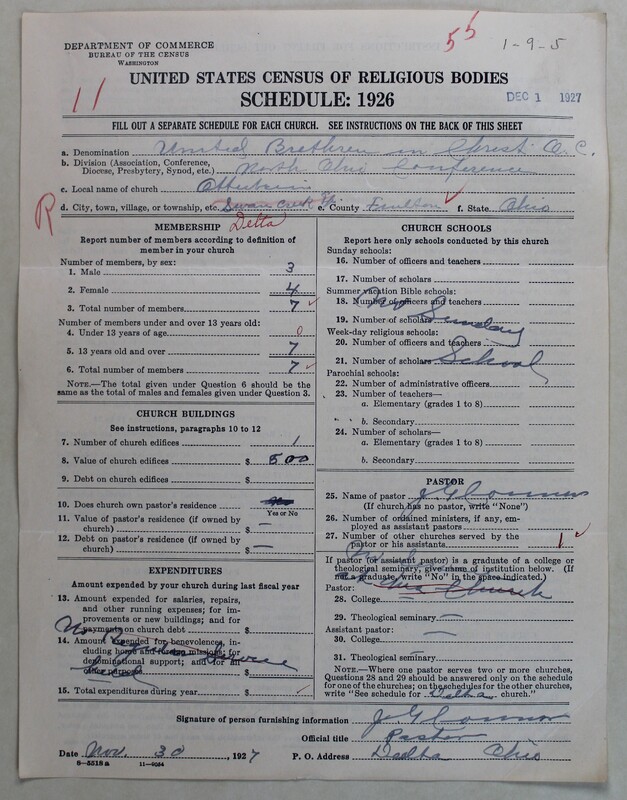 DEPARTMENT OF COMMERCE
BUREAU OF THE CENSUS
WASHINGTON
55
1-9-5
11
UNITED STATES CENSUS OF RELIGIOUS BODIES
SCHEDULE: 1926
DEC 1 1927
FILL OUT A SEPARATE SCHEDULE FOR EACH CHURCH. SEE INSTRUCTIONS ON THE BACK OF THIS SHEET
a. Denomination United Brethren in Christ O.C.
b. Division (Association, Conference, Diocese, Presbytery, Synod, etc.) North Ohio Conference
c. Local name of church Otterbein
R
d. City, town, village, or township, etc. Swan Creek Tp e. County Fulton f. State Ohio
Delta
MEMBERSHIP
Report number of members according to definition of member in your church
Number of members, by sex:
1. Male 3
2. Female 4
3. Total number of members 7
Number of members under and over 13 years old:
4. Under 13 years of age 0
5. 13 years old and over 7
6. Total number of members 7
NOTE.—The total given under Question 6 should be the same as the total of males and females given under Question 3.
CHURCH BUILDINGS
See instructions, paragraphs 10 to 12
7. Number of church edifices 1
8. Value of church edifices $ 500
9. Debt on church edifices $
10. Does church own pastor's residence
Yes or No
11. Value of pastor's residence (if owned by church) $ —
12. Debt on pastor's residence (if owned by church) $ —
EXPENDITURES
Amount expended by your church during last fiscal year
13. Amount expended for salaries, repairs, and other running expenses; for improvements or new buildings; and for payments on church debt $
No Regular Service
14. Amount expended for benevolences, including home and foreign missions; for denominational support; and for all other purposes $
15. Total expenditures during year $
CHURCH SCHOOLS
Report here only schools conducted by this church
Sunday schools:
16. Number of officers and teachers
17. Number of scholars
Summer vacation Bible schools:
18. Number of officers and teachers
19. Number of scholars
No Sunday School
Week-day religious schools:
20. Number of officers and teachers
21. Number of scholars
Parochial schools:
22. Number of administrative officers
23. Number of teachers—
a. Elementary (grades 1 to 8)
b. Secondary
24. Number of scholars—
a. Elementary (grades 1 to 8)
b. Secondary
PASTOR
25. Name of pastor J G Connor
(If church has no pastor, write "None")
26. Number of ordained ministers, if any, employed as assistant pastors
27. Number of other churches served by the pastor or his assistants 1
If pastor (or assistant pastor) is a graduate of a college or theological seminary, give name of institution below. (If not a graduate, write "No" in the space indicated.)
Church
Pastor:
28. College
29. Theological seminary —
Assistant pastor:
30. College
31. Theological seminary —
NOTE.—Where one pastor serves two or more churches, Questions 28 and 29 should be answered only on the schedule for one of the churches; on the schedules for the other churches, write "See schedule for Delta church."
Signature of person furnishing information J G Connor
Official title Pastor
Date Nov. 30, 1927 P. O. Address Delta Ohio
8—5518a 11—9034